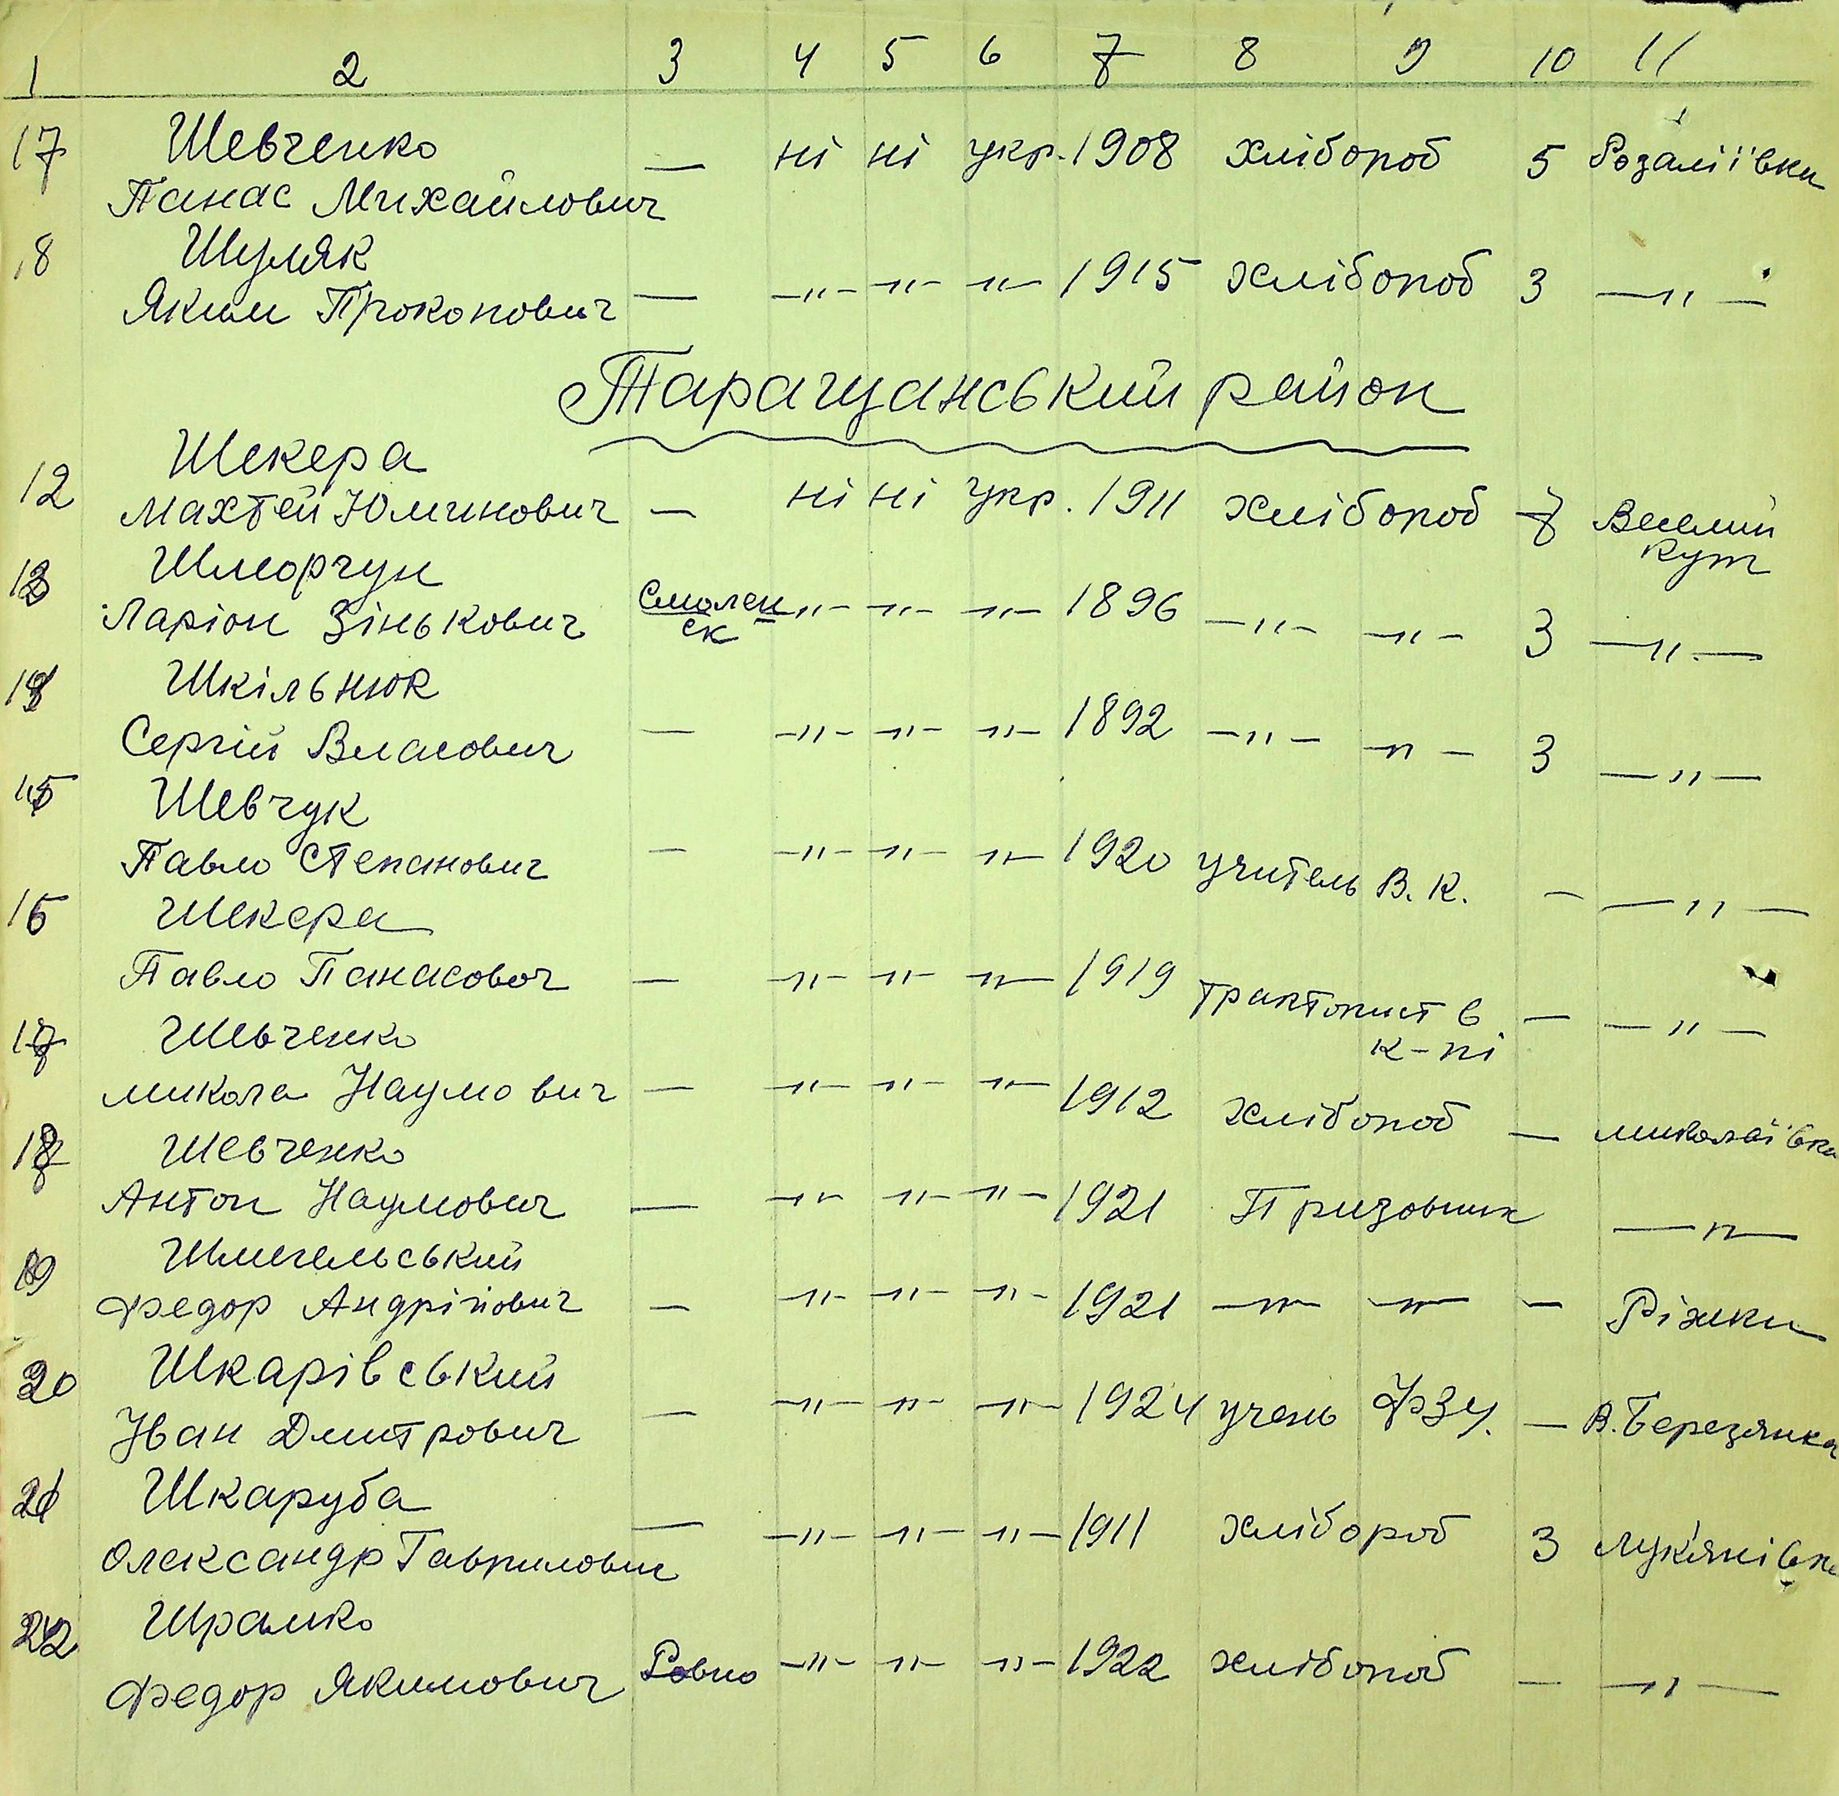 1 2 3 4 5 6 7 8 9 10 11
17 Шевченко — ні ні укр. 1908 хлібороб 5 Розаліївка
Панас Михайлович
18 Шуляк
Яким Прокопович — —"— —"— —"— 1915 хлібороб 3 —"—
Таращанський район
Шекера
12 Махтей Юхимович — ні ні укр. 1911 хлібороб 7 Веселий
Кут
13 Шморгун
Ларіон Зінькович Смолен —"— —"— —"— 1896 —"— —"— 3 —"—
ск
14 Шкільнюк
Сергій Власович — —"— —"— —"— 1892 —"— —"— 3 —"—
15 Шевчук
Павло Степанович — —"— —"— —"— 1920 учитель В. К. — —"—
16 Шекера
Павло Панасович — —"— —"— —"— 1919 тракторист в — —"—
к-пі
17 Шевченко
Микола Наумович — —"— —"— —"— 1912 хлібороб — Миколаївка
18 Шевченко
Антон Наумович — —"— —"— —"— 1921 Призовник —"—
19 Шмигельський
Федор Андрійович — —"— —"— —"— 1921 —"— —"— — Ріжки
20 Шкарівський
Іван Дмитрович — —"— —"— —"— 1924 учень ФЗУ. — В. Березянка
21 Шкаруба
Олександр Гаврилович — —"— —"— —"— 1911 хлібороб 3 Лук'янівка
22 Шрамко
Федор Якимович Ровно —"— —"— —"— 1922 хлібороб — —"—